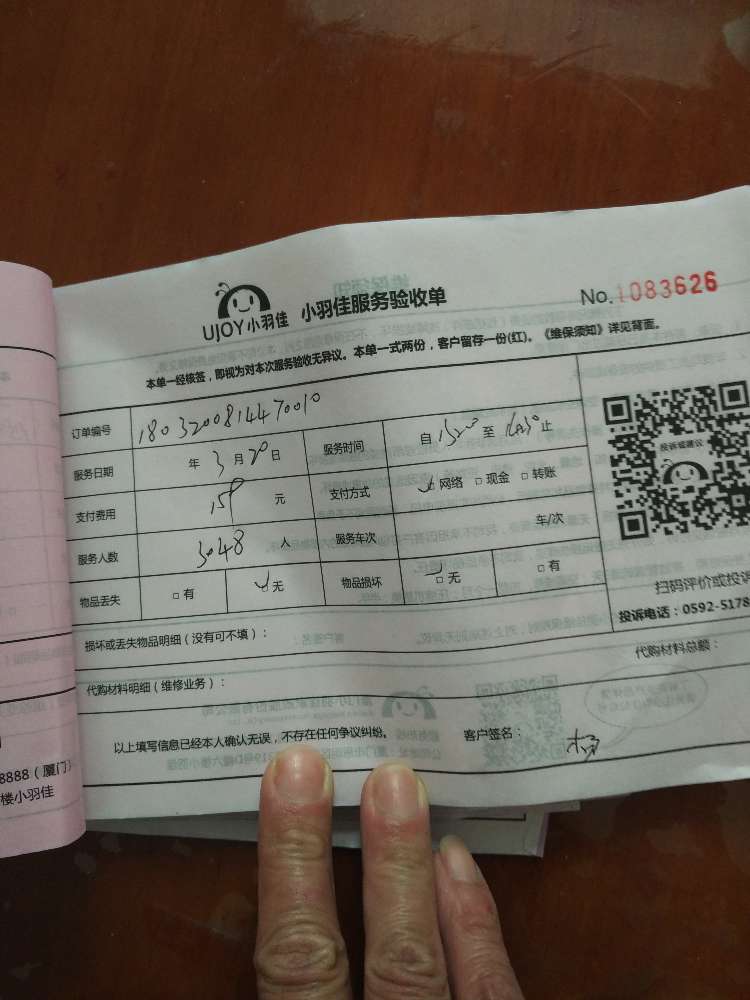 UJOY小羽佳 小羽佳服务验收单 No.1083626
本单一经核签,即视为对本次服务验收无异议。本单一式两份,客户留存一份(红)。《维保须知》详见背面。
订单编号 1803200814470010
服务日期 年 3 月 20 日 服务时间 自 至 止
支付费用 158 元 支付方式 网络 □ 现金 □ 转账
服务人数 3048 人 服务车次 车/次
物品丢失 □ 有 无 物品损坏 □ 无 □ 有
投诉或建议
扫码评价或投诉
投诉电话:0592-5178
损坏或丢失物品明细(没有可不填):
代购材料明细(维修业务): 代购材料总额:
以上填写信息已经本人确认无误,不存在任何争议纠纷。 客户签名:
8888(厦门)
楼小羽佳